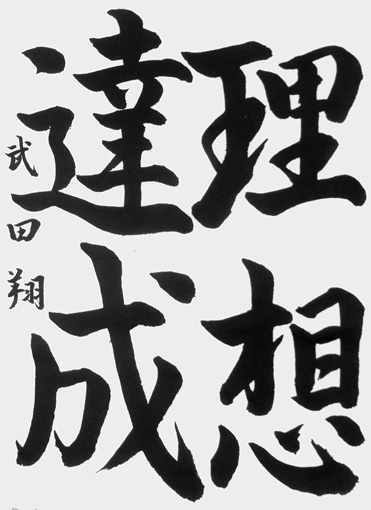 理想
達成
武田翔